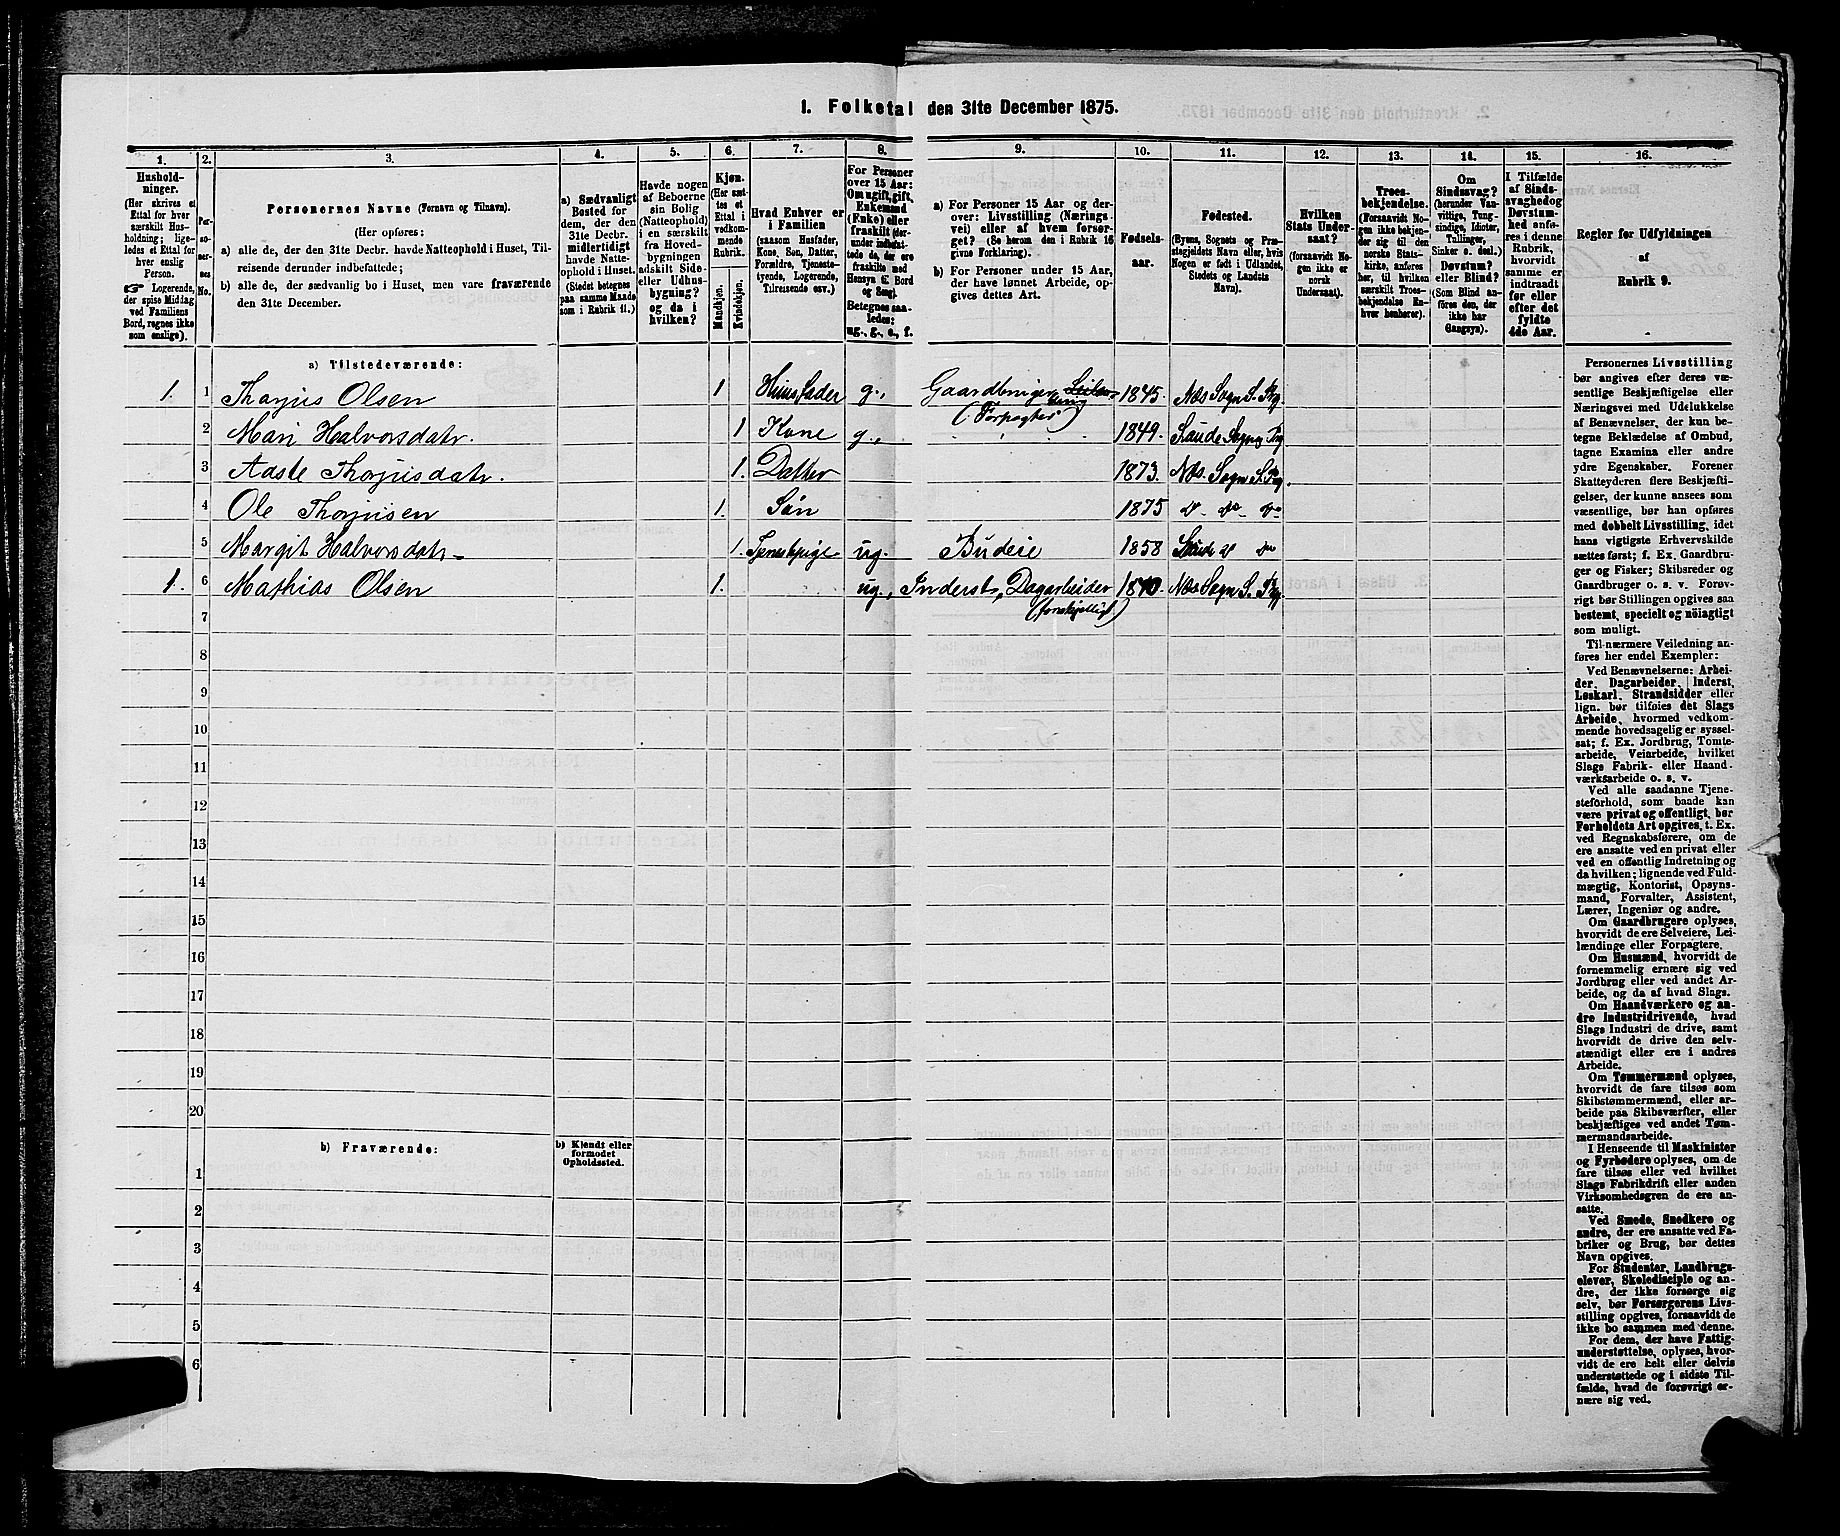 1. Folketal den 31te December 1875.
1.
2.
3.
4.
5.
6.
7.
8.
9.
10.
11.
12.
13.
14.
15.
16.
Hushold-
ninger.
(Her skrives et
Ettal for hver
særskilt Hus-
holdning; lige-
ledes et Ettal for
hver enslig
Person.
☞ Logerende,
der spise Middag
ved Familiens
Bord, regnes ikke
som enslige).
Per-
so-
ner-
nes
No.
Personernes Navne (Fornavn og Tilnavn).
(Her opføres:
a) alle de, der den 31te Decbr. havde Natteophold i Huset, Til-
reisende derunder indbefattede;
b) alle de, der sædvanlig bo i Huset, men vare fraværende
den 31te December.
a) Sædvanligt
Bosted for
dem, der den
31te Decbr.
midlertidigt
havde Natte-
ophold i Huset.
(Stedet betegnes
paa samme Maade
som i Rubrik 11.)
Havde nogen
af Beboerne
sin Bolig
(Natteophold)
i en særskilt
fra Hoved-
bygningen
adskilt Side-
eller Udhus-
bygning?
og da i
hvilken?
Kjøn.
(Her sæt-
tes et
Ettal i
vedkom-
mende
Rubrik.
Mandkjøn.
Kvindekjøn.
Hvad Enhver er
i Familien
(saasom Husfader,
Kone, Søn, Datter,
Forældre, Tjeneste-
tyende, Logerende,
Tilreisende osv.)
For Personer
over 15 Aar:
Om ugift, gift,
Enkemand
(Enke) eller
fraskilt (der-
under indbefat-
tede de, der ere
fraskilte med
Hensyn til Bord
og Seng).
Betegnes saa-
ledes:
ug., g., e., f.
a) For Personer 15 Aar og der-
over: Livsstilling (Nærings
vei) eller af hvem forsør-
get? (Se herom den i Rubrik 16
givne Forklaring).
b) For Personer under 15 Aar,
der have lønnet Arbeide, op-
gives dettes Art.
Fødsels-
aar.
Fødested.
(Byens, Sognets og Præ-
stegjeldets Navn eller, hvis
Nogen er født i Udlandet,
Stedets og Landets
Navn).
Hvilken
Stats Under-
saat?
(forsaavidt No-
gen ikke er
norsk
Undersaat).
Troes-
bekjendelse.
(Forsaavidt No-
gen ikke bekjen-
der sig til den
norske Stats-
kirke, anføres
her, til hvilken
særskilt Troes-
bekjendelse En-
hver henhører).
Om
Sindssvag?
(herunder Van-
vittige, Tung-
sindige, Idioter,
Tullinger,
Sinker o. desl.)
Døvstum?
eller Blind?
(Som Blind an-
føres den, der
ikke har
Gangsyn).
I Tilfælde
af Sinds-
svaghed og
Døvstum-
hed anfø-
res i denne
Rubrik,
hvorvidt
samme er
indtraadt
før eller
efter det
fyldte
4de Aar.
Regler for Udfyldningen
af
Rubrik 9.
a) Tilstedeværende:
1. 1 Thorjus Olsen 1 Huusfader g., Gaardbruger 1845. Næs Sogn S. Pg
(Forpagter)
2 Mari Halvorsdatr. 1 Kone g., 1849. Saude Sogn og Pg
3 Aaste Thorjusdatr. 1. Datter 1873. Næs Sogn S. Pg.
4 Ole Thorjusen 1. Søn 1875 do do do
5 Margit Halvorsdatr 1. Tjenestepige ug. Budeie 1858 Saude do do
1. 6 Mathias Olsen 1. ug., Inderst, Dagarbeider Næs Sogn S. Pg.
(forskjelligt.)
7
8
9
10
11
12
13
14
15
16
17
18
19
20
b) Fraværende:
b) Kjendt eller
formodet
Opholdssted.
1
2
3
4
5
6
Personernes Livsstilling
bør angives efter deres væ-
sentlige Beskjæftigelse eller
Næringsvei med Udelukkelse
af Benævnelser, der kun be-
tegne Beklædelse af Ombud,
tagne Examina eller andre
ydre Egenskaber. Forener
Skatteyderen flere Beskjæfti-
gelser, der kunne ansees som
væsentlige, bør han opføres
med dobbelt Livsstilling, idet
hans vigtigste Erhvervskilde
sættes først; f. Ex. Gaardbru-
ger og Fisker; Skibsreder og
Gaardbruger o. s. v. Forøv-
rigt bør Stillingen opgives saa
bestemt, specielt og nøiagtigt
som muligt.
Til nærmere Veiledning an-
føres her endel Exempler:
Ved Benævnelserne: Arbei-
der, Dagarbeider, Inderst,
Løskarl, Strandsidder eller
lign. bør tilføies det Slags
Arbeide, hvormed vedkom-
mende hovedsagelig er syssel-
sat; f. Ex. Jordbrug, Tomte-
arbeide, Veiarbeide, hvilket
Slags Fabrik- eller Haand-
værksarbeide o. s. v.
Ved alle saadanne Tjene-
steforhold, som baade kan
være privat og offentligt, bør
Forholdets Art opgives, t. Ex.
ved Regnskabsførere, om de
ere ansatte ved en privat eller
ved en offentlig Indretning og
da hvilken; lignende ved Fuld-
mægtig, Kontorist, Opsyns-
mand, Forvalter, Assistent,
Lærer, Ingeniør og andre.
Om Gaardbrugere oplyses,
hvorvidt de ere Selveiere, Lei-
lændinge eller Forpagtere.
Om Husmænd, hvorvidt de
fornemmelig ernære sig ved
Jordbrug eller ved andet Ar-
beide, og da af hvad Slags.
Om Haandværkere og an-
dre Industridrivende, hvad
Slags Industri de drive, samt
hvorvidt de drive den selv-
stændigt eller ere i andres
Arbeide.
Om Tømmermænd oplyses,
hvorvidt de fare tilsøs som
Skibstømmermænd, eller ar-
beide paa Skibsværfter, eller
beskjæftiges ved andet Tøm-
mermandsarbeide.
I Henseende til Maskinister
og Fyrbødere oplyses, om de
fare tilsøs eller ved hvilket
Slags Fabrikdrift eller anden
Virksomhedsgren de ere an-
satte.
Ved Smede, Snedkere og
andre, der ere ansatte ved Fa-
briker og Brug, bør dettes
Navn opgives.
For Studenter, Landbrugs-
elever, Skoledisciple og an-
dre, der ikke forsørge sig
selv, bør Forsørgerens Livs-
stilling opgives, forsaavidt de
ikke bo sammen med denne.
For dem, der have Fattig-
understøttelse, oplyses, hvor-
vidt de ere helt eller delvis
understøttede og i sidste Til-
fælde, hvad de forøvrigt er-
nære sig ved.